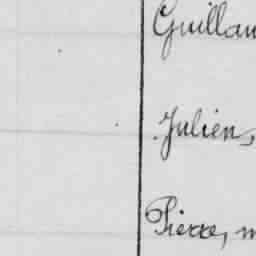 Guillau
Julien,
Pierre, m